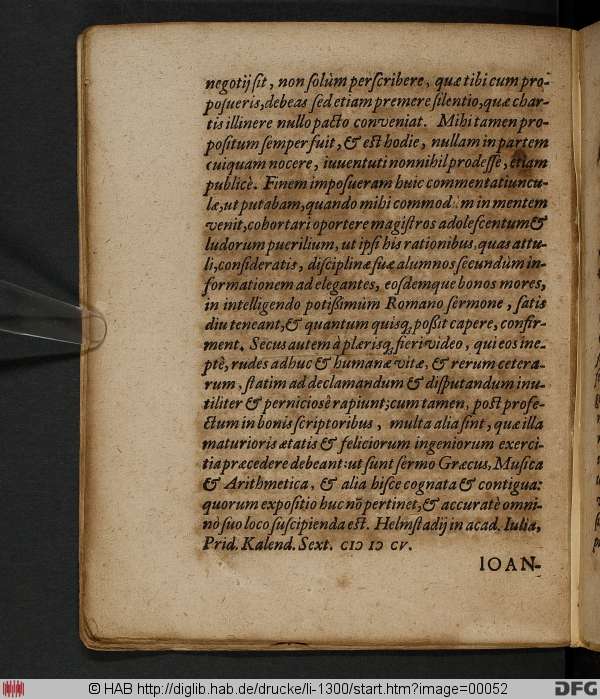 negotij ſit, non ſolùm perſcribere, quæ tibi cum pro-
poſueris, debeas ſed etiam premere ſilentio, quæ char-
tis illinere nullo pacto conveniat. Mihi tamen pro-
poſitum ſemper fuit, & eſt hodie, nullam in partem
cuiquam nocere, iuuentuti nonnihil prodeſſe, etiam
publicè. Finem impoſueram huic commentatiuncu-
læ, ut putabam, quando mihi commod m in mentem
venit, cohortari oportere magiſtros adoleſcentum &
ludorum puerilium, ut ipſi his rationibus, quas attu-
li, conſideratis, diſciplinæ ſuæ alumnos ſecundùm in-
formationem ad elegantes, eosdemque bonos mores,
in intelligendo potißimùm Romano ſermone, ſatis
diu teneant, & quantum quisq; poßit capere, confir-
ment. Secus autem à plærisq; fieri video, qui eos ine-
ptè, rudes adhuc & humanæ vitæ, & rerum cetera-
rum, ſtatim ad declamandum & diſputandum inu-
tiliter & pernicioſè rapiunt; cum tamen, poſt profe-
ctum in bonis ſcriptoribus, multa alia ſint, quæ illa
maturioris ætatis & feliciorum ingeniorum exerci-
tia præcedere debeant: ut ſunt ſermo Græcus, Muſica
& Arithmetica, & alia hiſce cognata & contigua:
quorum expoſitio huc nō pertinet, & accuratè omni-
nò ſuo loco ſuſcipienda eſt. Helmſtadij in acad. Iulia,
Prid. Kalend. Sext. CIↃ IↃ CV.
IOAN-
© HAB http://diglib.hab.de/drucke/li-1300/start.htm?image=00052
DFG